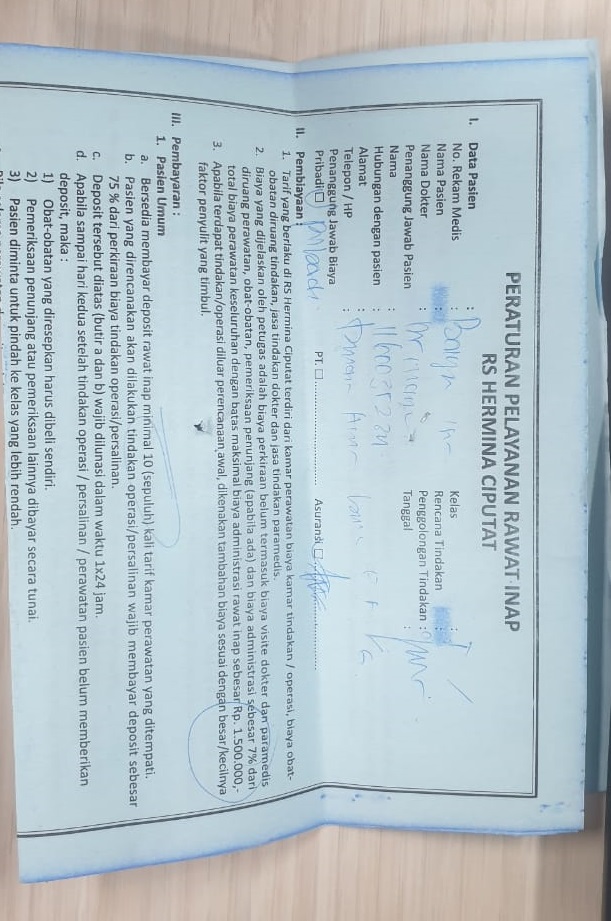 PERATURAN PELAYANAN RAWAT INAP
RS HERMINA CIPUTAT
I. Data Pasien
No. Rekam Medis : Kelas
Nama Pasien Rencana Tindakan :
Nama Dokter : Penggolongan Tindakan :
Penanggung Jawab Pasien Tanggal :
Nama :
Hubungan dengan pasien :
Alamat :
Telepon / HP :
Penanggung Jawab Biaya :
Pribadi □ pribadi PT □ .................... Asuransi □ ....................
II. Pembiayaan :
1. Tarif yang berlaku di RS Hermina Ciputat terdiri dari kamar perawatan biaya kamar tindakan / operasi, biaya obat-
obatan diruang tindakan, jasa tindakan dokter dan jasa tindakan paramedis.
2. Biaya yang dijelaskan oleh petugas adalah biaya perkiraan belum termasuk biaya visite dokter dan paramedis
diruang perawatan, obat-obatan, pemeriksaan penunjang (apabila ada) dan biaya administrasi sebesar 7% dari
total biaya perawatan keseluruhan dengan batas maksimal biaya administrasi rawat inap sebesar Rp. 1.500.000,-
3. Apabila terdapat tindakan/operasi diluar perencanaan awal, dikenakan tambahan biaya sesuai dengan besar/kecilnya
faktor penyulit yang timbul.
III. Pembayaran :
1. Pasien Umum
a. Bersedia membayar deposit rawat inap minimal 10 (sepuluh) kali tarif kamar perawatan yang ditempati.
b. Pasien yang direncanakan akan dilakukan tindakan operasi/persalinan wajib membayar deposit sebesar
75 % dari perkiraan biaya tindakan operasi/persalinan.
c. Deposit tersebut diatas (butir a dan b) wajib dilunasi dalam waktu 1x24 jam.
d. Apabila sampai hari kedua setelah tindakan operasi / persalinan / perawatan pasien belum memberikan
deposit, maka :
1) Obat-obatan yang diresepkan harus dibeli sendiri.
2) Pemeriksaan penunjang atau pemeriksaan lainnya dibayar secara tunai.
3) Pasien diminta untuk pindah ke kelas yang lebih rendah.